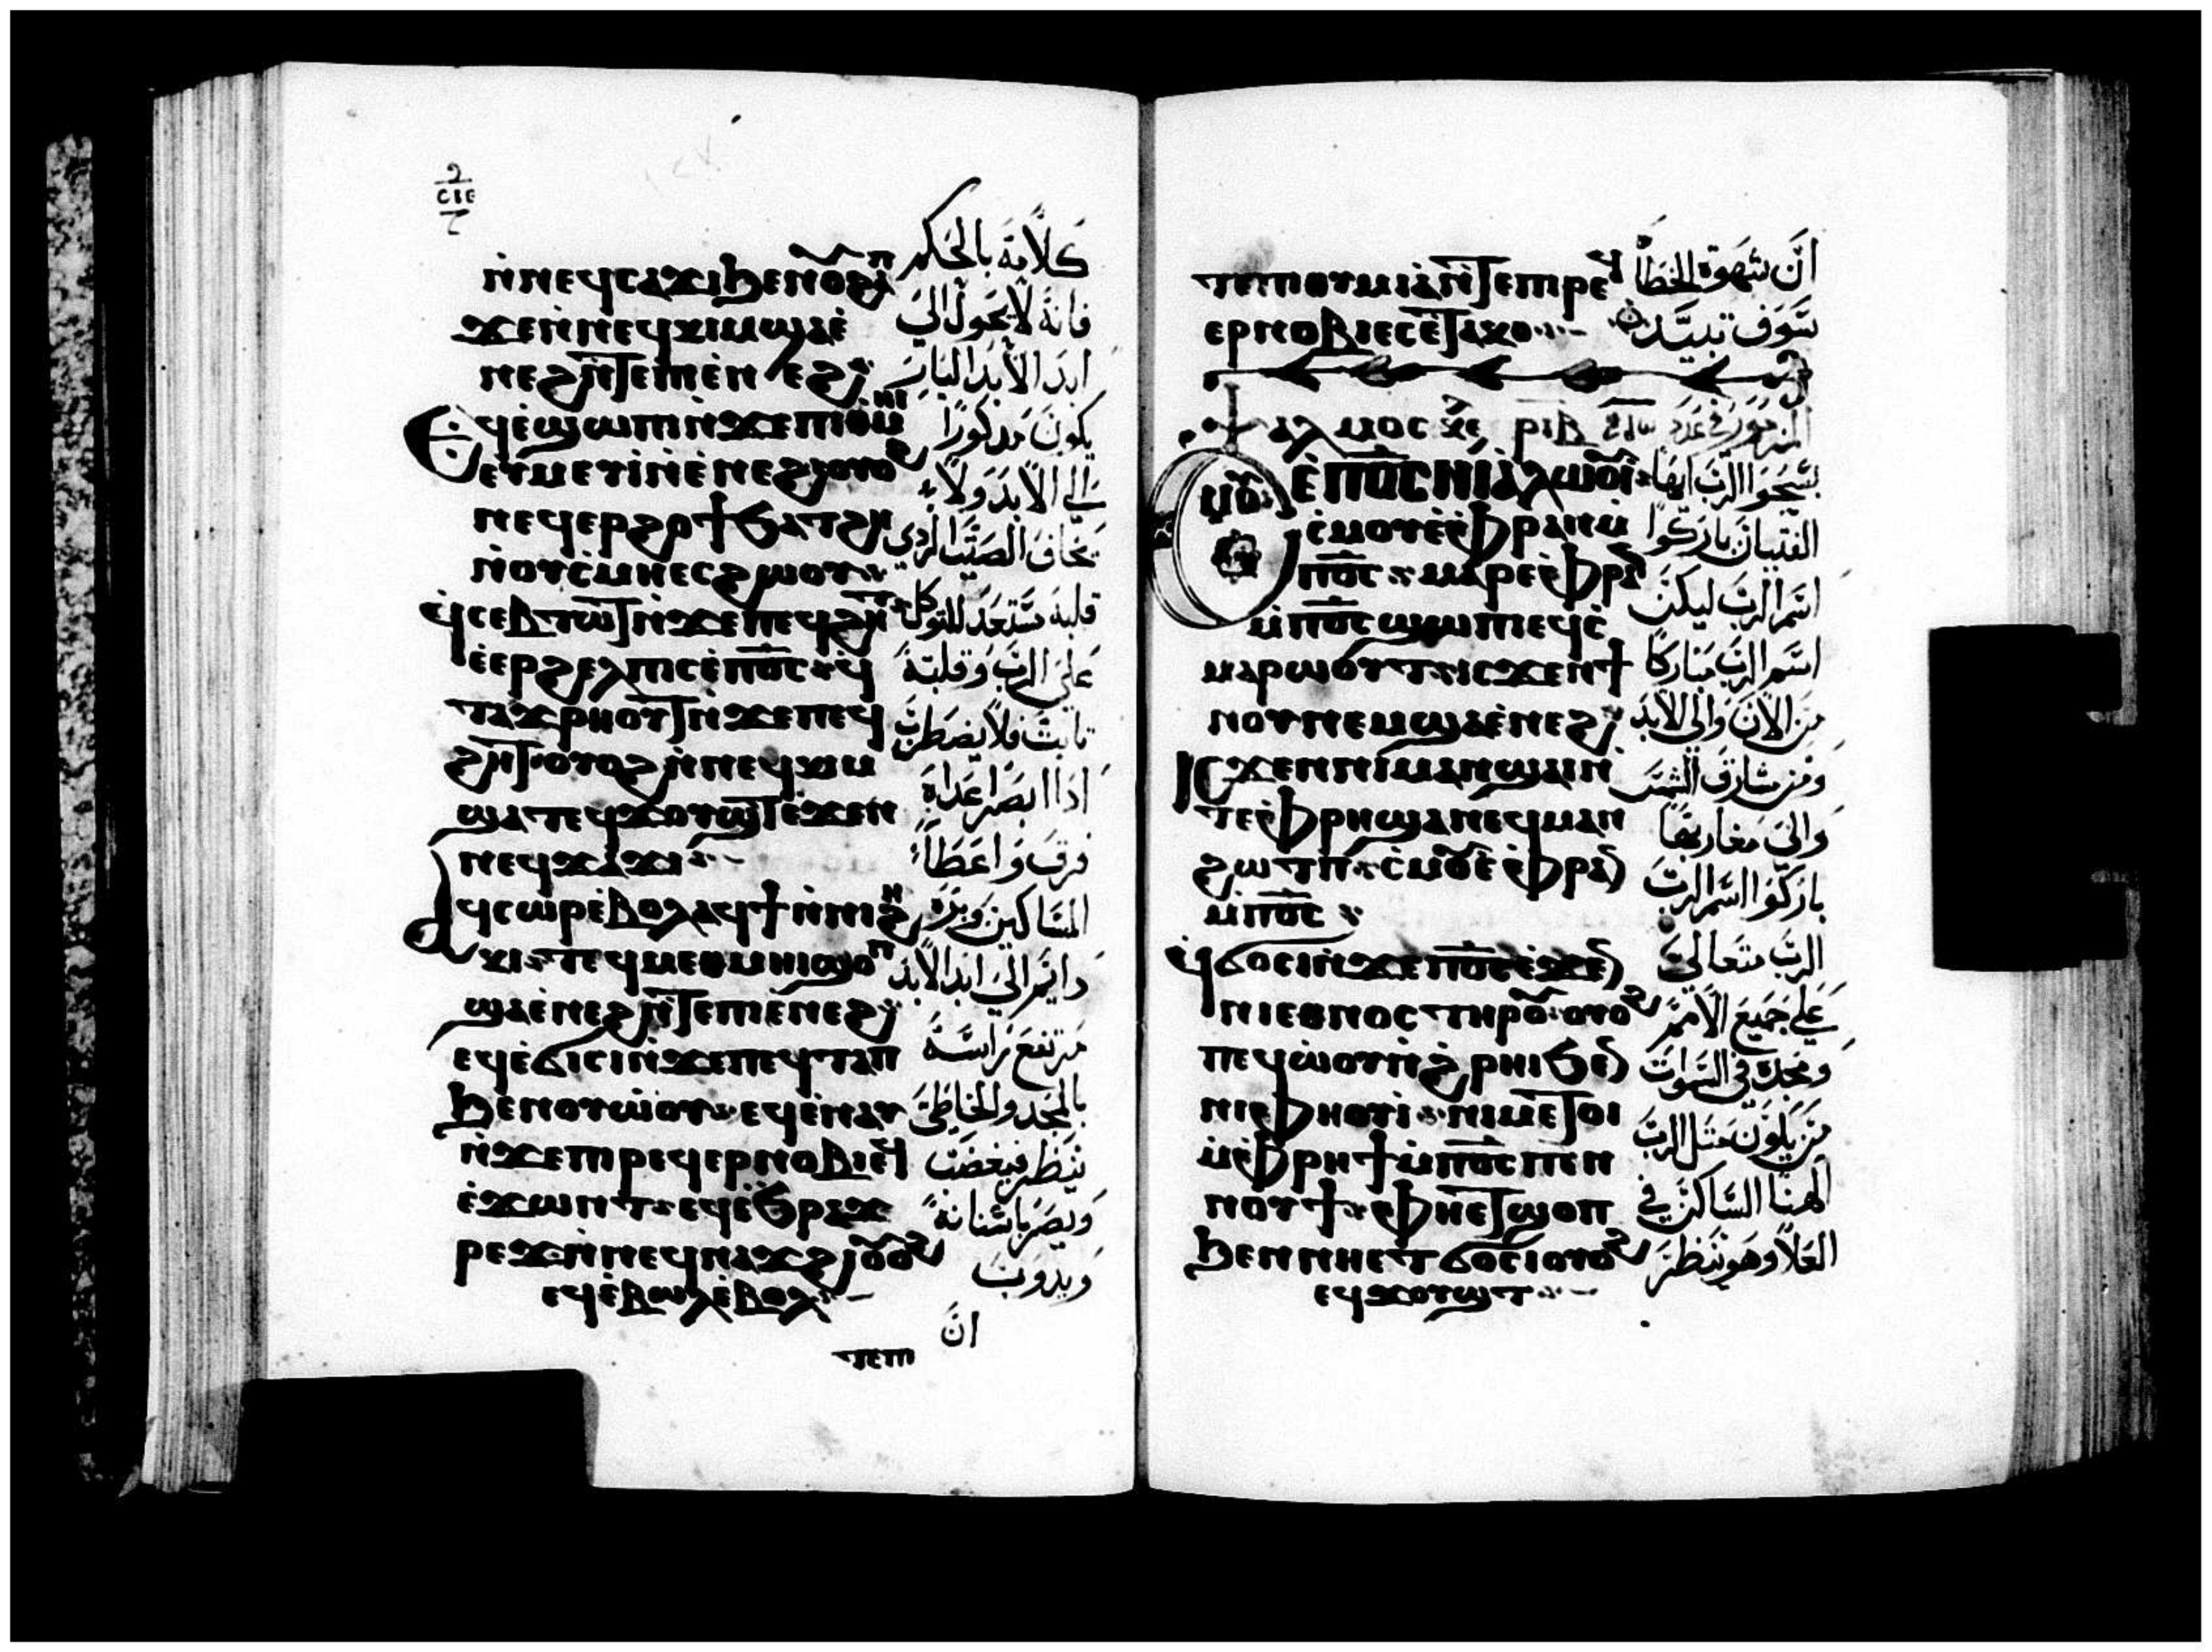 ⲥⲓⲉ
ⲛ̀ⲛⲉϥⲥⲁϫⲓ ϧⲉⲛ ⲟⲩϩⲁⲡ
ϫⲉ ⲛ̀ⲛⲉϥⲕⲓⲙ ϣⲁ ⲉ̀
ⲛⲉϩ ⲛ̀ⲧⲉ ⲡⲓⲉ̀ⲛⲉϩ
Ⲉϥⲉ̀ϣⲱⲡⲓ ⲛ̀ϫⲉ ⲡⲓⲑⲙⲏⲓ
ⲉⲩⲙⲉⲩⲓ̀ ⲛ̀ⲉ̀ⲛⲉϩ ⲟⲩⲟϩ
ⲛⲉϥⲉⲣϩⲟϯ ϧⲁⲧϩⲏ
ⲛ̀ⲟⲩⲥ̀ⲙⲏ ⲉⲥϩⲱⲟⲩ
ϥ̀ⲥⲉⲃⲧⲱⲧ ⲛ̀ϫⲉ ⲡⲉϥϩⲏⲧ
ⲉ̀ⲉⲣϩⲉⲗⲡⲓⲥ ⲉ̀ⲡ⳪ ϥ
ⲧⲁϫⲣⲏⲟⲩⲧ ⲛ̀ϫⲉ ⲡⲉϥ
ϩⲏⲧ ⲟⲩⲟϩ ⲛ̀ⲛⲉϥⲕⲓⲙ
ϣⲁⲧⲉϥϫⲟⲩϣⲧ ⲉ̀ϫⲉⲛ
ⲛⲉϥϫⲁϫⲓ
Ⲁϥⲥⲱⲣ ⲉ̀ⲃⲟⲗ ⲁϥϯ ⲛ̀ⲛⲓϩⲏ
ⲕⲓ ⲧⲉϥⲙⲉⲑⲙⲏⲓ ϣⲟⲡ
ϣⲁ ⲉ̀ⲛⲉϩ ⲛ̀ⲧⲉ ⲡⲓⲉ̀ⲛⲉϩ
ⲉϥⲉ̀ϭⲓⲥⲓ ⲛ̀ϫⲉ ⲡⲉϥⲧⲁⲡ
ϧⲉⲛ ⲟⲩⲱ̀ⲟⲩ ⲉϥⲉ̀ⲛⲁⲩ
ⲛ̀ϫⲉ ⲡⲓⲣⲉϥⲉⲣⲛⲟⲃⲓ ⲉϥ
ⲉ̀ϫⲱⲛⲧ ⲉϥⲉ̀ϧⲣⲁϫ
ⲣⲉϫ ⲛ̀ⲛⲉϥⲛⲁϫϩⲓ ⲟⲩⲟϩ
ⲉϥⲉ̀ⲃⲱⲗ ⲉ̀ⲃⲟⲗ
ⲧⲉⲡⲓ
كلامه بالحكم
فانه لا يحول الي
ابد الابد البار
يكون مدكورا
الي الابد ولا
يخاف الصيت الردي
قلبه مستعد للتوكل
علي الرب وقلبه
تابت فلا يضطرب
ادا ابصر اعداه
فرق واعطا
المساكين وبره
دايم الي ابد الابد
مرتفع راسه
بالمجد والخاطي
ينظر فيغضب
ويصر باسنانه
ويدوب
ان
ⲧⲉⲡⲓⲑⲩⲙⲓⲁ ⲛ̀ⲧⲉ ⲡⲓⲣⲉϥ
ⲉⲣⲛⲟⲃⲓ ⲉⲥⲉ̀ⲧⲁⲕⲟ
ⲯⲁⲗⲙⲟⲥ ⲣⲓⲃ
ⲥ̀ⲙⲟⲩ ⲉ̀ⲡ⳪ ⲛⲓⲁ̀ⲗⲱⲟⲩⲓ̀
ⲥ̀ⲙⲟⲩ ⲉ̀ⲫⲣⲁⲛ ⲙ̀
ⲡ⳪ ⲙⲁⲣⲉ ⲫⲣⲁⲛ
ⲙ̀ⲡ⳪ ϣⲱⲡⲓ ⲉϥⲥ̀
ⲙⲁⲣⲱⲟⲩⲧ ⲓⲥϫⲉⲛ ϯ
ⲛⲟⲩ ⲛⲉⲙ ϣⲁ ⲉ̀ⲛⲉϩ
Ⲓⲥϫⲉⲛ ⲛⲓⲙⲁⲛϣⲁⲓ ⲛ̀
ⲧⲉ ⲫⲣⲏ ϣⲁ ⲛⲉϥⲙⲁⲛ
ϩⲱⲧⲡ ⲥ̀ⲙⲟⲩ ⲉ̀ⲫⲣⲁⲛ
ⲙ̀ⲡ⳪
ϥ̀ϭⲟⲥⲓ ⲛ̀ϫⲉ ⲡ⳪ ⲉ̀ϫⲉⲛ
ⲛⲓⲉⲑⲛⲟⲥ ⲧⲏⲣⲟⲩ ⲟⲩⲟϩ
ⲡⲉϥⲱ̀ⲟⲩ ⲛ̀ϩ̀ⲣⲏⲓ ϧⲉⲛ
ⲛⲓⲫⲏⲟⲩⲓ̀ ⲛⲓⲙ ⲉⲧⲟⲓ
ⲙ̀ⲫⲣⲏϯ ⲙ̀ⲡ⳪ ⲡⲉⲛ
ⲛⲟⲩϯ ⲫⲏⲉⲧϣⲟⲡ
ϧⲉⲛ ⲛⲏⲉⲧϭⲟⲥⲓ ⲟⲩⲟϩ
ⲉϥϫⲟⲩϣⲧ
ان شهوة الخطاة
سوف تبيد
المزمور
سبحوا الرب ايها
الفتيان باركوا
اسم الرب ليكن
اسم الرب مباركا
من الان والي الابد
ومن مشارق الشمس
والي مغاربها
باركوا اسم الرب
الرب متعالي
علي جميع الامم
ومجده في السموات
من يكون مثل الرب
الهنا الساكن في
العلا وهو ينظر